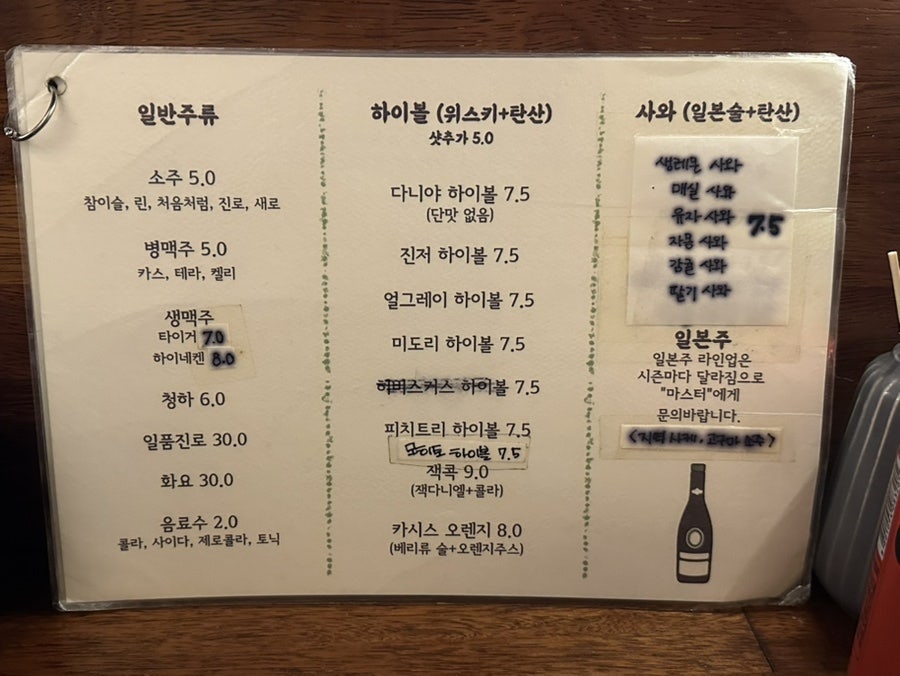 일반주류
소주 5.0
참이슬, 린, 처음처럼, 진로, 새로
병맥주 5.0
카스, 테라, 켈리
생맥주
타이거 7.0
하이네켄 8.0
청하 6.0
일품진로 30.0
화요 30.0
음료수 2.0
콜라, 사이다, 제로콜라, 토닉
하이볼 (위스키+탄산)
샷추가 5.0
다니야 하이볼 7.5
(단맛 없음)
진저 하이볼 7.5
얼그레이 하이볼 7.5
미도리 하이볼 7.5
히비스커스 하이볼 7.5
피치트리 하이볼 7.5
모히또 하이볼 7.5
잭콕 9.0
(잭다니엘+콜라)
카시스 오렌지 8.0
(베리류 술+오렌지주스)
사와 (일본술+탄산)
생레몬 사와
매실 사와
유자 사와 7.5
자몽 사와
감귤 사와
딸기 사와
일본주
일본주 라인업은
시즌마다 달라짐으로
"마스터"에게
문의바랍니다.
<지역 사케, 고구마 소주>